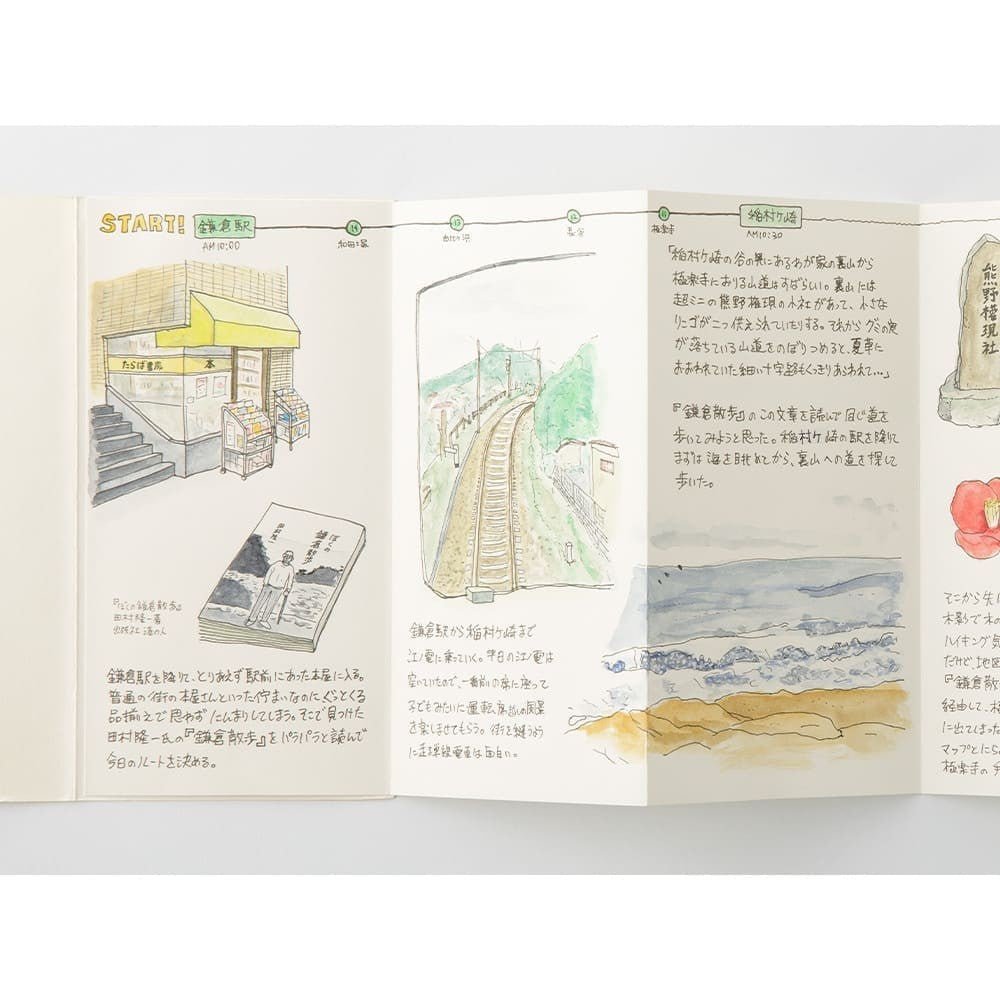 START!
鎌倉駅
AM10:00
14
和田塚
13
由比ヶ浜
12
長谷
11
極楽寺
稲村ヶ崎
AM10:30
たらば書房
本
ぼくの
鎌倉散歩
田村隆一
『ぼくの鎌倉散歩』
田村隆一著
出版社 港の人
鎌倉駅を降りて、とりあえず駅前にあった本屋に入る。
普通の街の本屋さんといった佇まいなのにぐっとくる
品揃えで思わずにんまりしてしまう。そこで見つけた
田村隆一氏の『鎌倉散歩』をパラパラと読んで
今日のルートを決める。
鎌倉駅から稲村ヶ崎まで
江ノ電に乗っていく。平日の江ノ電は
空いていたので、一番前の席に座って
子どもみたいに運転席越しの風景
を楽しませてもらう。街を縫うよう
に走る緑電車は面白い。
「稲村ヶ崎の谷の奥にあるわが家の裏山から
極楽寺におりる山道はすばらしい。裏山には
超ミニの熊野権現の小社があって、小さな
リンゴが二つ供えられていたりする。それからグミの実
が落ちている山道をのぼりつめると、夏草に
おおわれていた細い十字路もくっきりあらわれて…」
『鎌倉散歩』のこの文章を読んで同じ道を
歩いてみようと思った。稲村ヶ崎の駅を降りて
まずは海を眺めてから、裏山への道を探して
歩いた。
熊野権現社
そこから先に
木影で木の
ハイキング気
だけど、地図
『鎌倉散
経由して、極
に出てしまった
マップとにら
極楽寺の